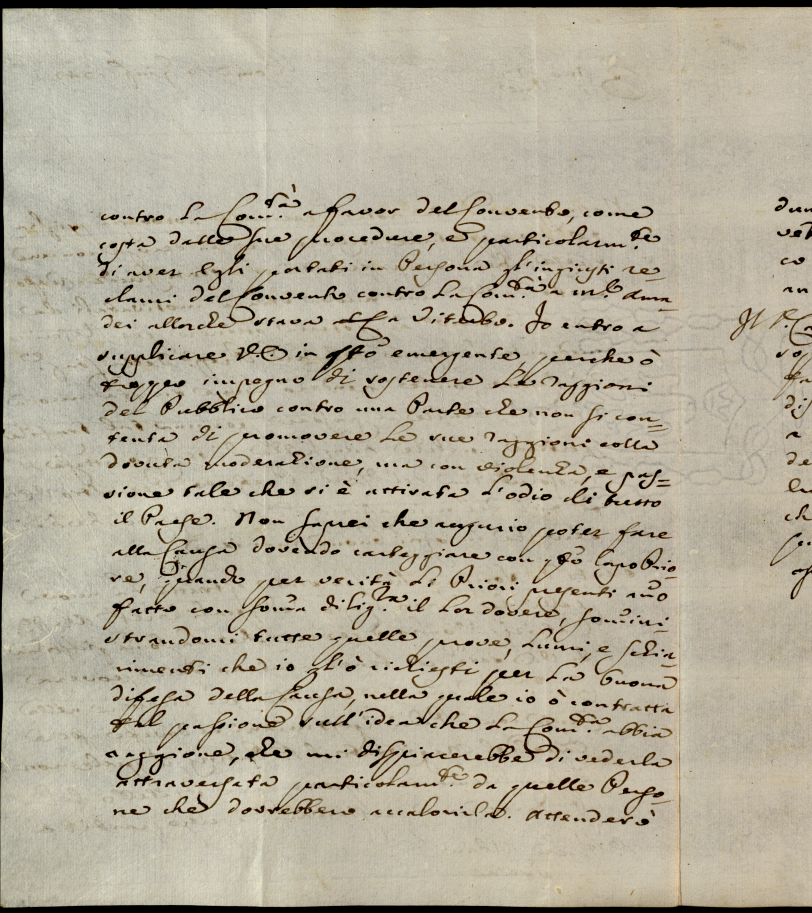 contro La Com.tà a favor del Convento, come
costa dalle sue procedure, e particolarm.te
di aver Egli portati in Persona gl'ingiusti re-
clami del Convento contro La Com.tà a m.r Ama-
dei allorche stava a Viterbo. Io entro a
supplicare V.E. in q͂sto emergente, perche ò
preso impegno di sostenere Le raggioni
del Pubblico contro una Parte che non si con-
tenta di promovere Le sue raggioni colla
dovuta moderazione, ma con violenza, e pas=
sione tale che si è attirata l'odio di tutto
il Paese. Non saprei che augurio poter fare
alla Causa dovendo carteggiare con q͂sto Capo Prio-
re, quando per verità Li Priori presenti ano
fatto con soma dilig.za il Lor dovere, somini-
strandomi tutte quelle prove, Lumi, e schia-
rimenti che io gl'ò richiesti per La buona
difesa della Causa, nella quale io ò contratta
tal passione sull'idea che La Com.tà abbia
raggione, che mi dispiacerebbe di vederla
attraversata particolarm.te da quelle Perso-
ne che dovrebbero accalorirla. Attenderò
dun
vet
co
an
Il P. C
di
a
de
la
ch